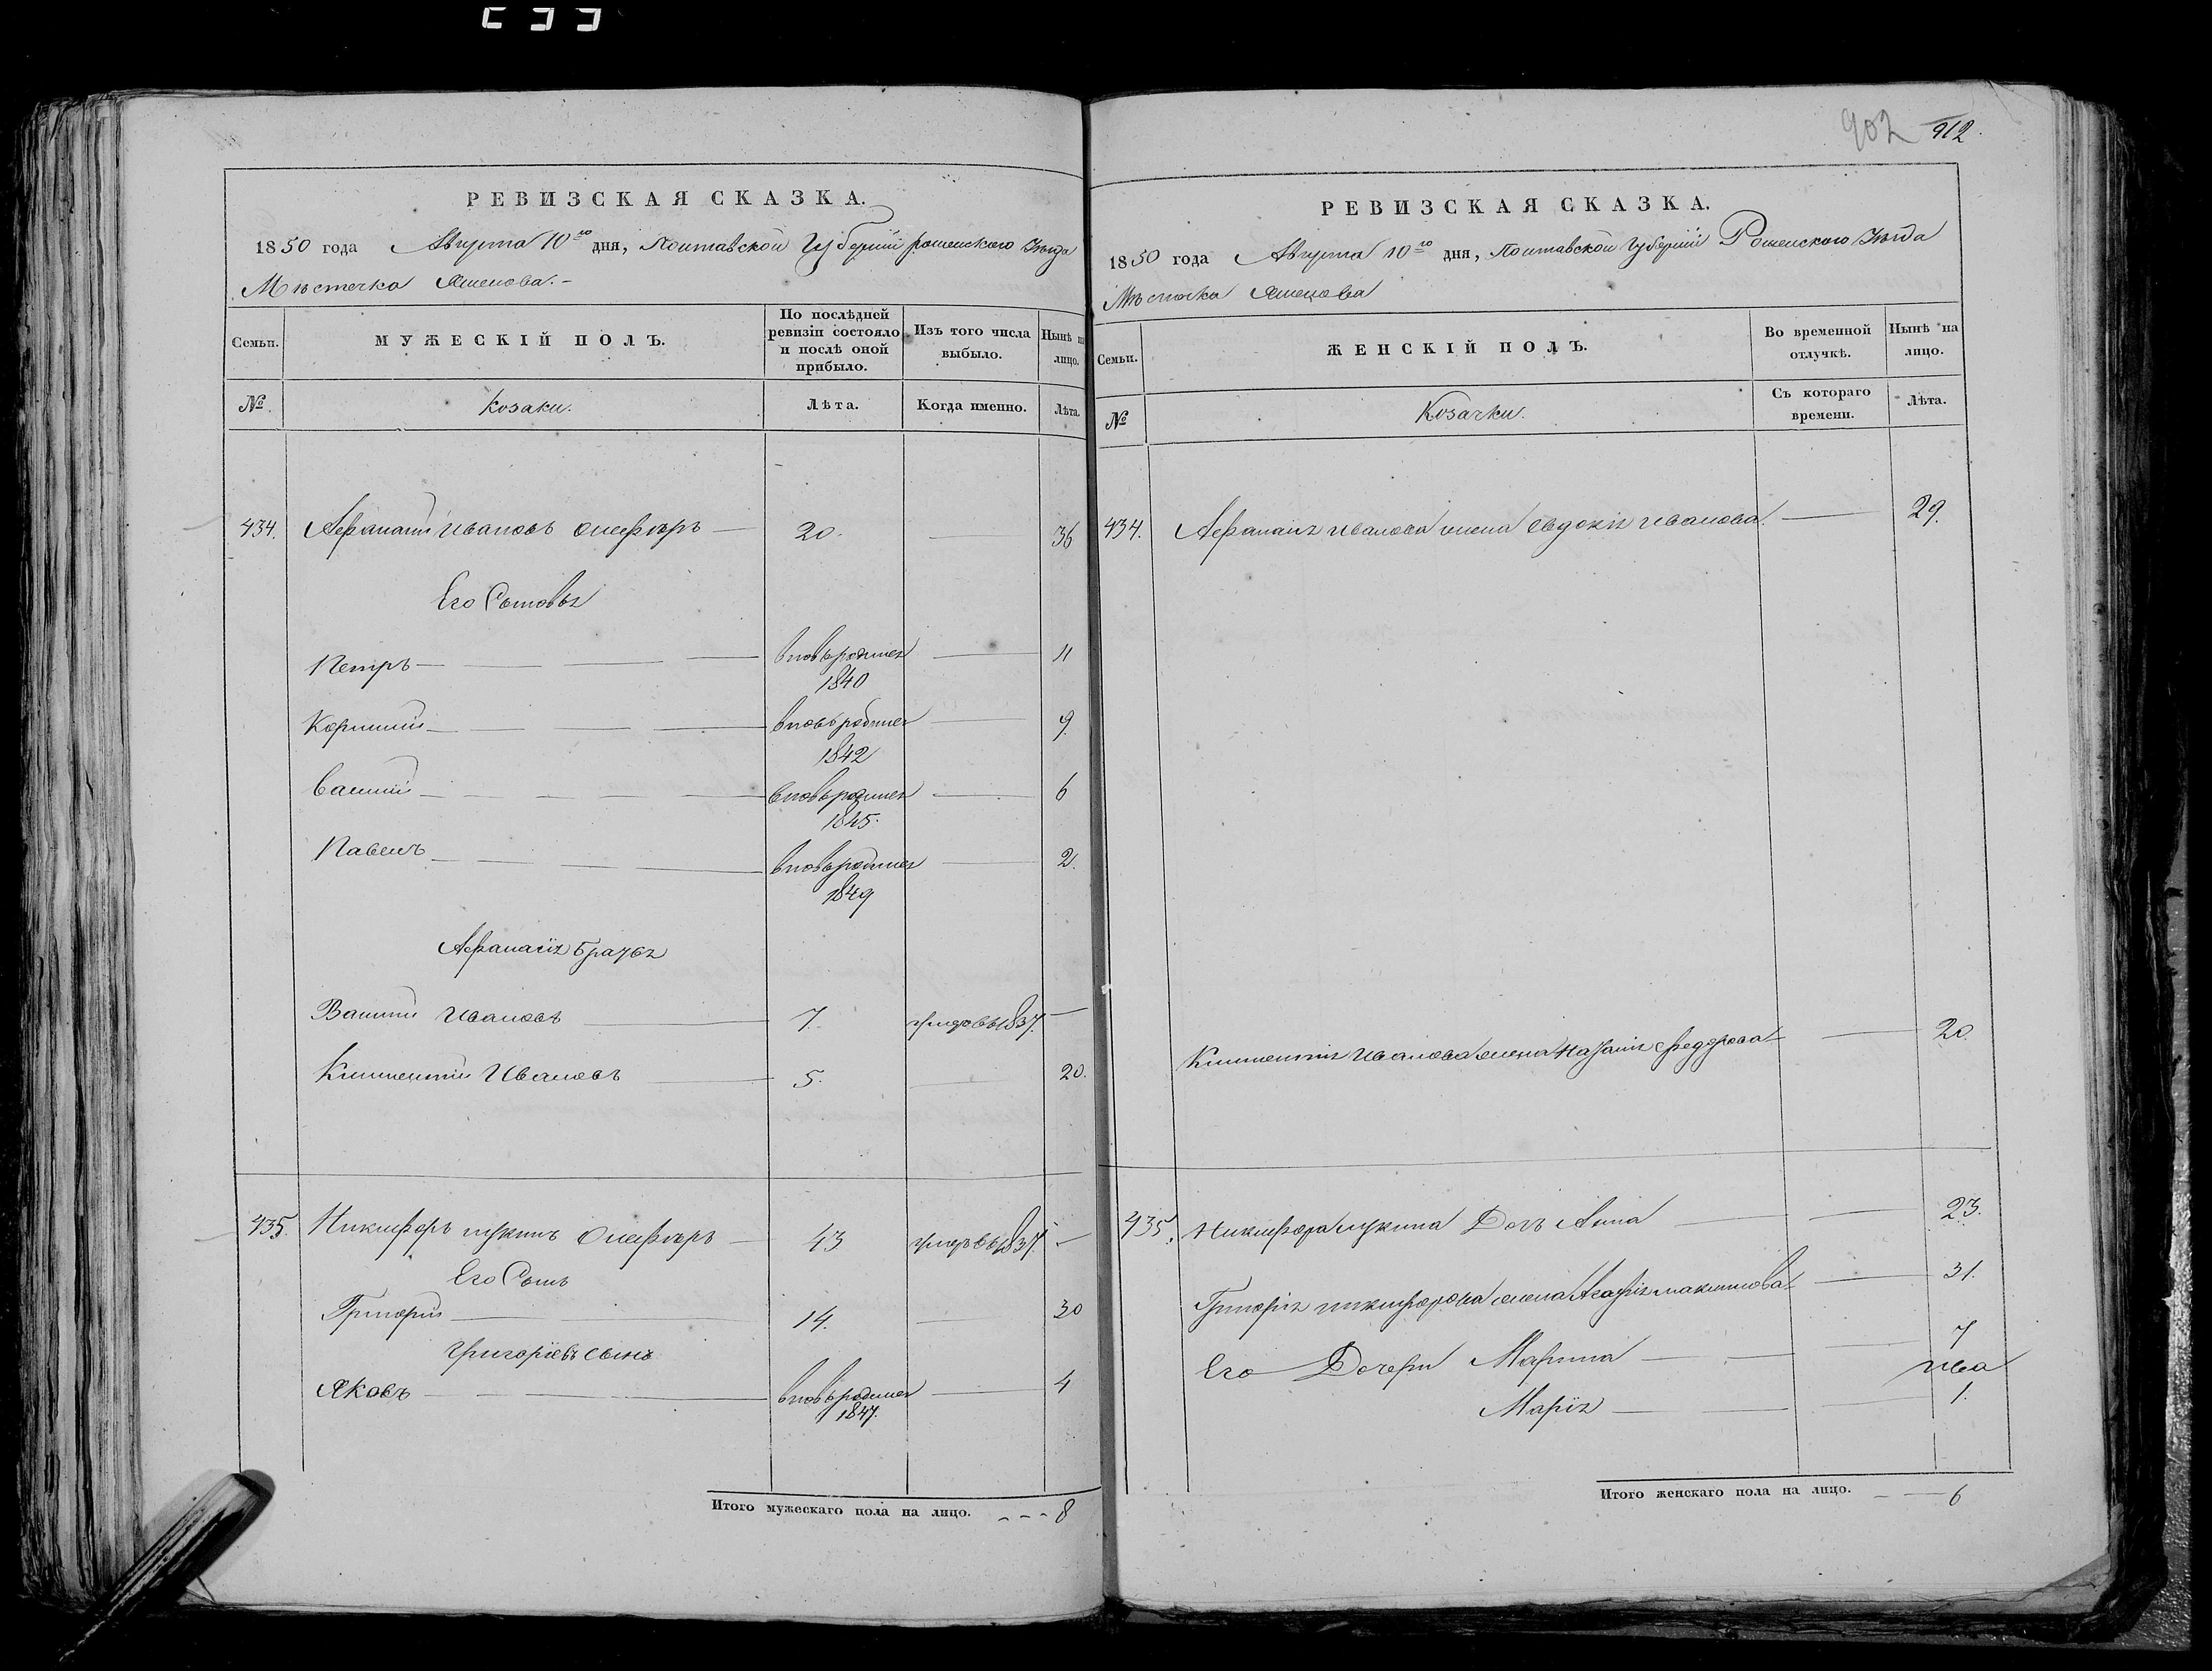 902 912.
РЕВИЗСКАЯ СКАЗКА.
1850 года Августа 10го дня, Полтавской Губерніи роменского Уезда
Мѣстечка
Семьи. МУЖЕСКІЙ ПОЛЪ. По послѣдней ревизіи состояло и послѣ оной прибыло. Изъ того числа выбыло. Нынѣ на лицо.
№ Козаки. Лѣта. Когда именно. Лѣта.
434. Афанасій Ивановъ 20. — 36
Его Сыновья
Петръ — вновьродился 1840 — 11
Корнилій — вновьродился 1842 — 9
Василій — вновьродился 1845. — 6
Павелъ — вновьродился 1849 — 2.
Афанасія Братья
Василій Ивановъ — 7. умеръ въ 1837. —
Климентій Ивановъ — 5. — 20.
435. Никифоръ Лукинъ — 43 умеръ въ 1837. —
Его Сынъ
Григорій — 14. — 30
Григоріевъ сынъ
Яковъ — вновьродился 1847. — 4
Итого мужескаго пола на лицо. - - - 8
РЕВИЗСКАЯ СКАЗКА.
1850 года Августа 10го дня, Полтавской Губерніи Роменского Уезда
Мѣстечка
Семьи. ЖЕНСКІЙ ПОЛЪ. Во временной отлучкѣ. Нынѣ на лицо.
№ Козачки. Съ котораго времени. Лѣта.
434. Афанасія Иванова жена Евдокія Иванова. — 29.
Климентія Иванова жена Наталія Федорова — 20.
435. Никифора Лукина Дочь Анна — 23.
Григорія Никифорова жена Агафія Максимова — 31.
Его Дочери Марина — 7
Марія — 1.
Итого женскаго пола на лицо. — 6